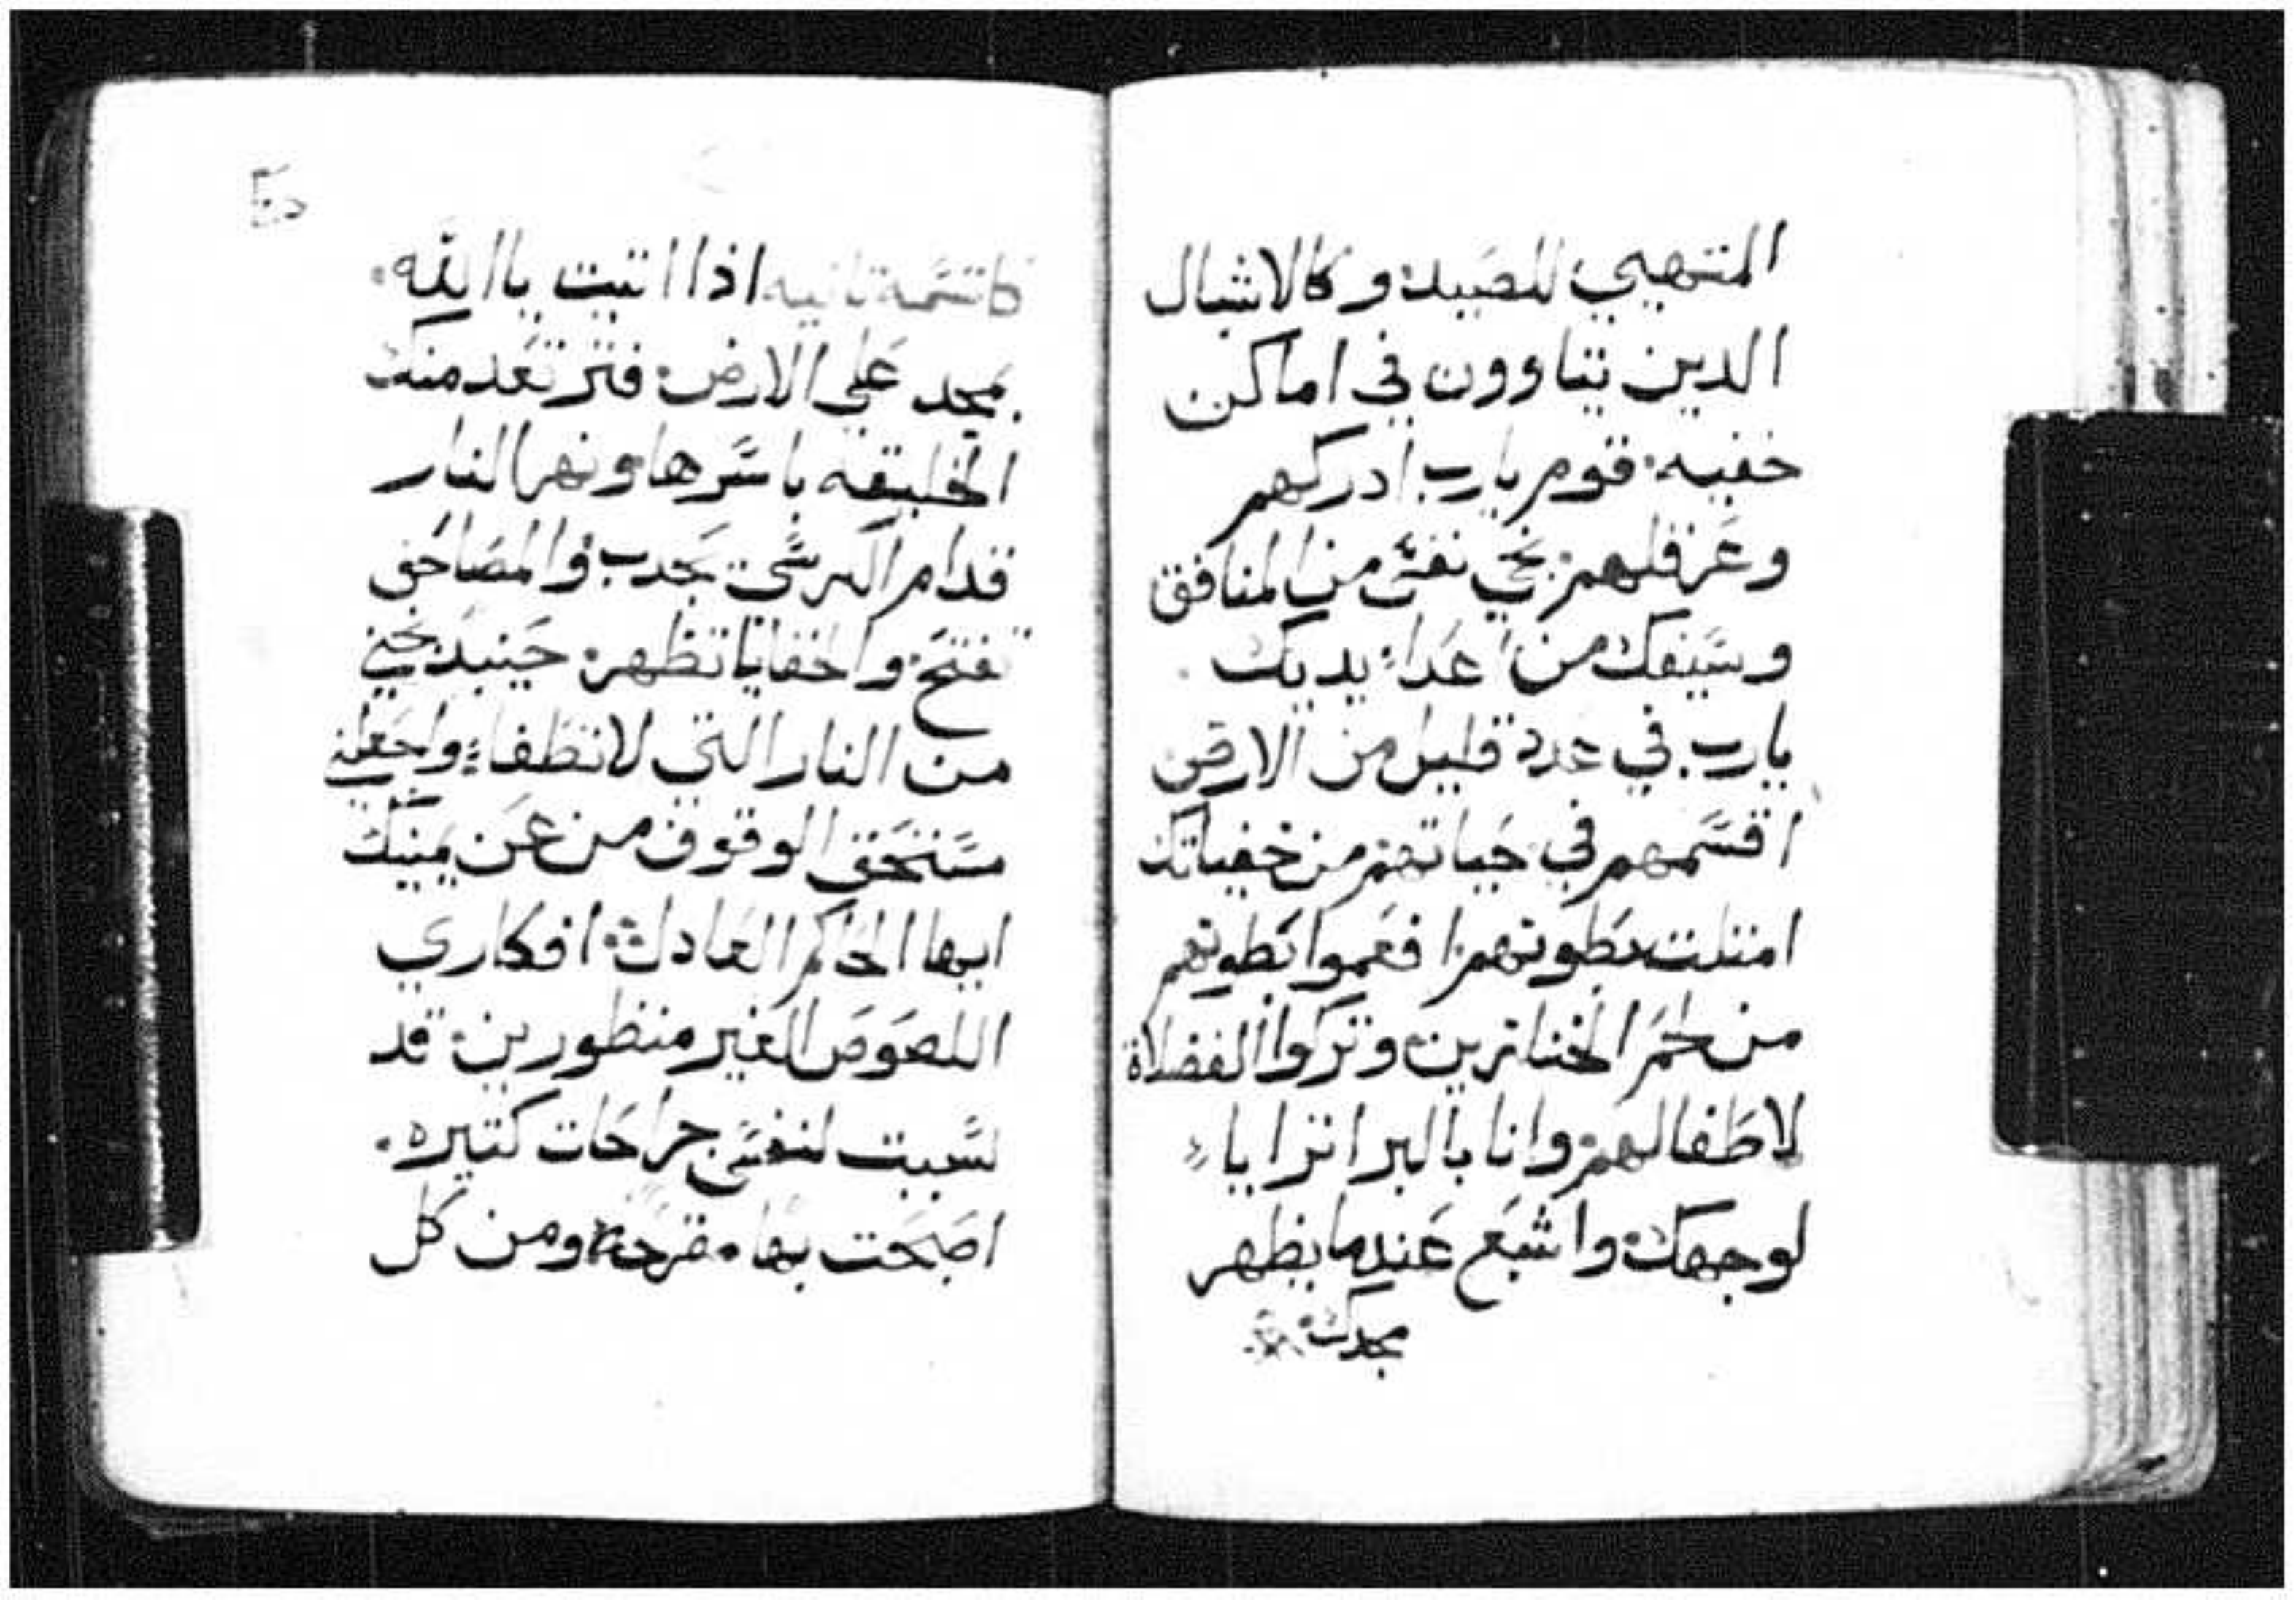 المتهيي للصيد، وكالاشبال
الدين يتاوون في اماكن
خفيه. قوم يارب ادركهم
وعرقلهم. نجي نفسي من المنافق
وسيفك من اعداء يديك.
يارب في عدد قليل من الارض
اقسمهم في حياتهم. من خفياتك
امتلت بطونهم. افعموا بطونهم
من لحم الخنازير. وتركوا الفضلاة
لاطفالهم. وانا بالبر اترايا
لوجهك. واشبع عندما يظهر
مجدك.
كاتسمة تانيه اذا اتيت ياالله.
بمجد علي الارض. فترتعد منك
الخليقه باسرها. ونهر النار
قدام الكرسي يجدب. والمصاحف
تفتح. والخفايا تظهر. حينيد نجني
من النار التي لا تطفاء. واجعلني
مستحق الوقوف من عن يمينك
ايها الحاكم العادل. افكاري
اللصوص الغير منظورين. قد
سببت لنفسي جراحات كتيره.
اصبحت بها مقرحة. ومن كل